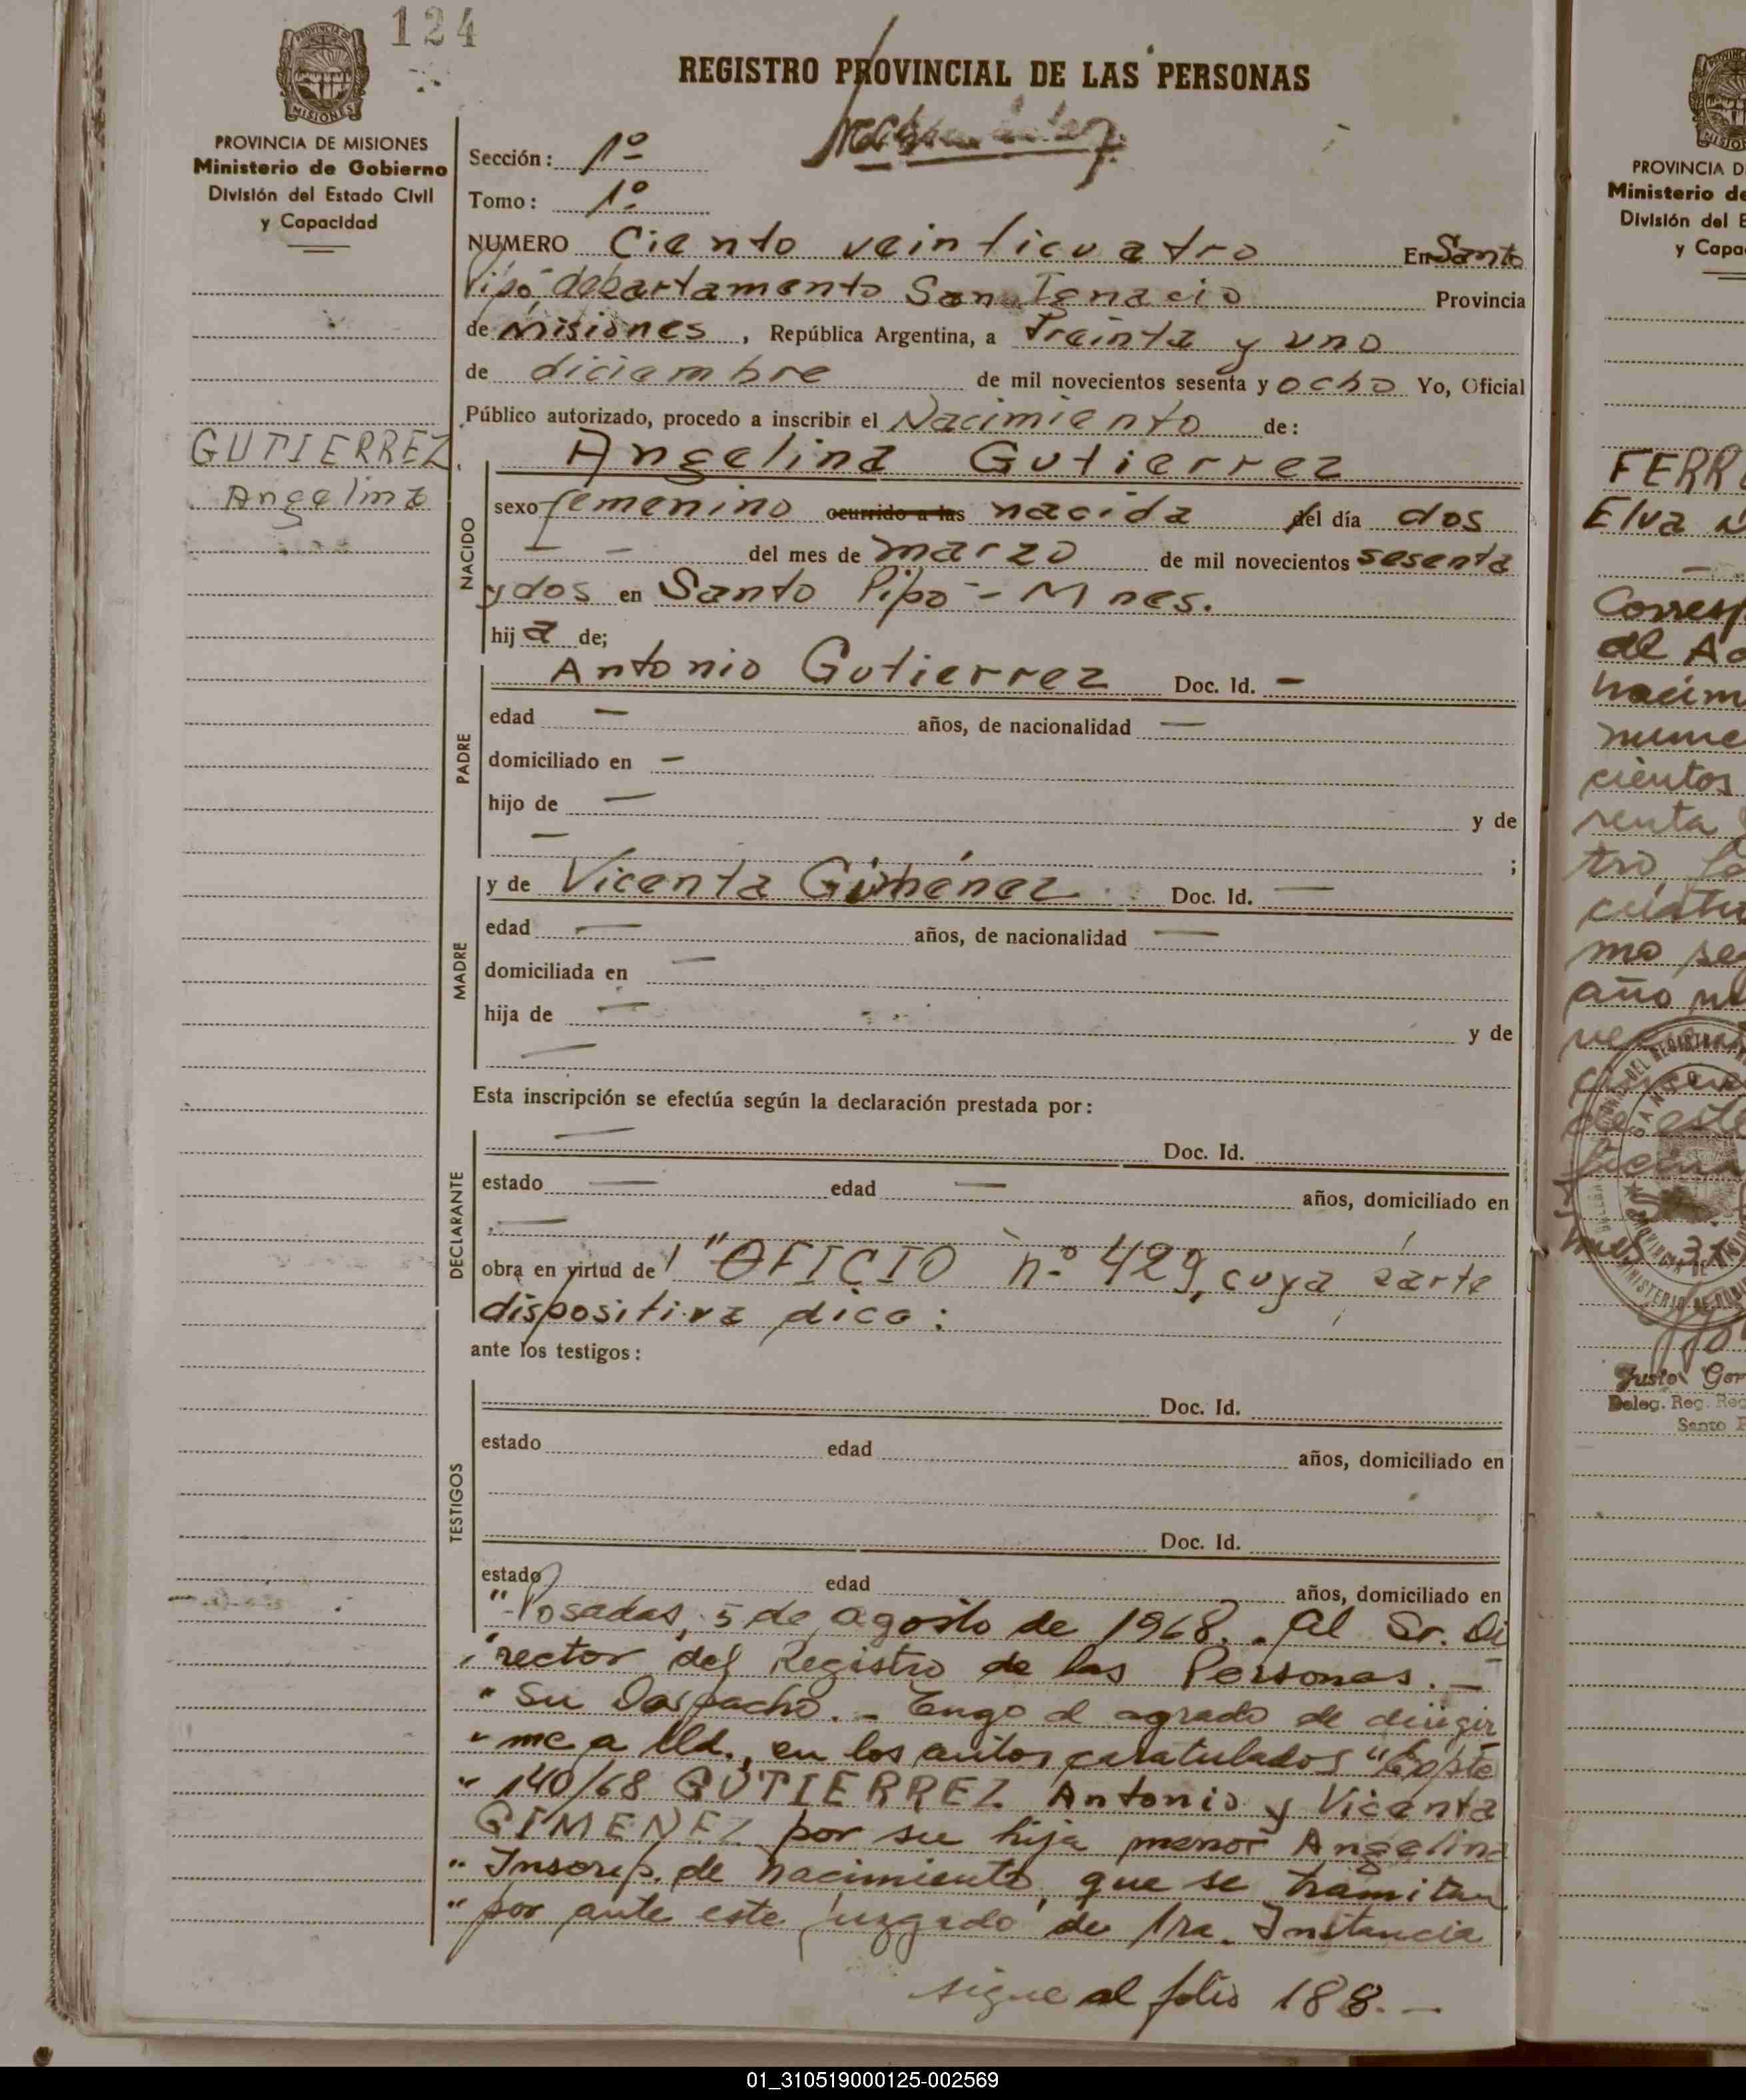 124
REGISTRO PROVINCIAL DE LAS PERSONAS
MISIONES
PROVINCIA DE MISIONES
Ministerio de Gobierno
División del Estado Civil
y Capacidad
Sección: 1º
Tomo: 1º
NUMERO Ciento veinticuatro En Santo
Pipó departamento San Ignacio Provincia
de Misiones, República Argentina, a Treinta y uno
de diciembre de mil novecientos sesenta y ocho Yo, Oficial
Público autorizado, procedo a inscribir el Nacimiento de:
GUTIERREZ
Angelina
NACIDO
Angelina Gutierrez
sexo femenino ocurrido a las nacida del día dos
— — del mes de marzo de mil novecientos sesenta
y dos en Santo Pipó - Mnes.
hij a de;
PADRE
Antonio Gutierrez Doc. Id. —
edad — años, de nacionalidad —
domiciliado en —
hijo de — y de
— ;
MADRE
y de Vicenta Giménez Doc. Id. —
edad — años, de nacionalidad —
domiciliada en —
hija de — y de
—
Esta inscripción se efectúa según la declaración prestada por:
DECLARANTE
— Doc. Id.
estado — edad — años, domiciliado en
—
obra en virtud de "OFICIO nº 429, cuya parte
dispositiva dice:
ante los testigos:
TESTIGOS
Doc. Id.
estado edad años, domiciliado en
Doc. Id.
estado edad años, domiciliado en
"Posadas, 5 de agosto de 1968.. Al Sr. Di
"rector del Registro de las Personas. —
" Su Despacho. - Tengo el agrado de dirigir
" me a Ud., en los autos caratulados "Expte
" 140/68 GUTIERREZ Antonio y Vicenta
GIMENEZ por su hija menor Angelina
" Inscrip. de nacimiento, que se tramitan
" por ante este juzgado de 1ra. Instancia
sigue al folio 188. —
PROVINCIA D
Ministerio de
División del E
y Capa
FERR
Elva
Corresp
al Ac
nacim
nume
cientos
renta
tro,
cuatro
mo se
año
de este
Justo Gon
Deleg. Reg. Reg
Santo P
01_310519000125-002569